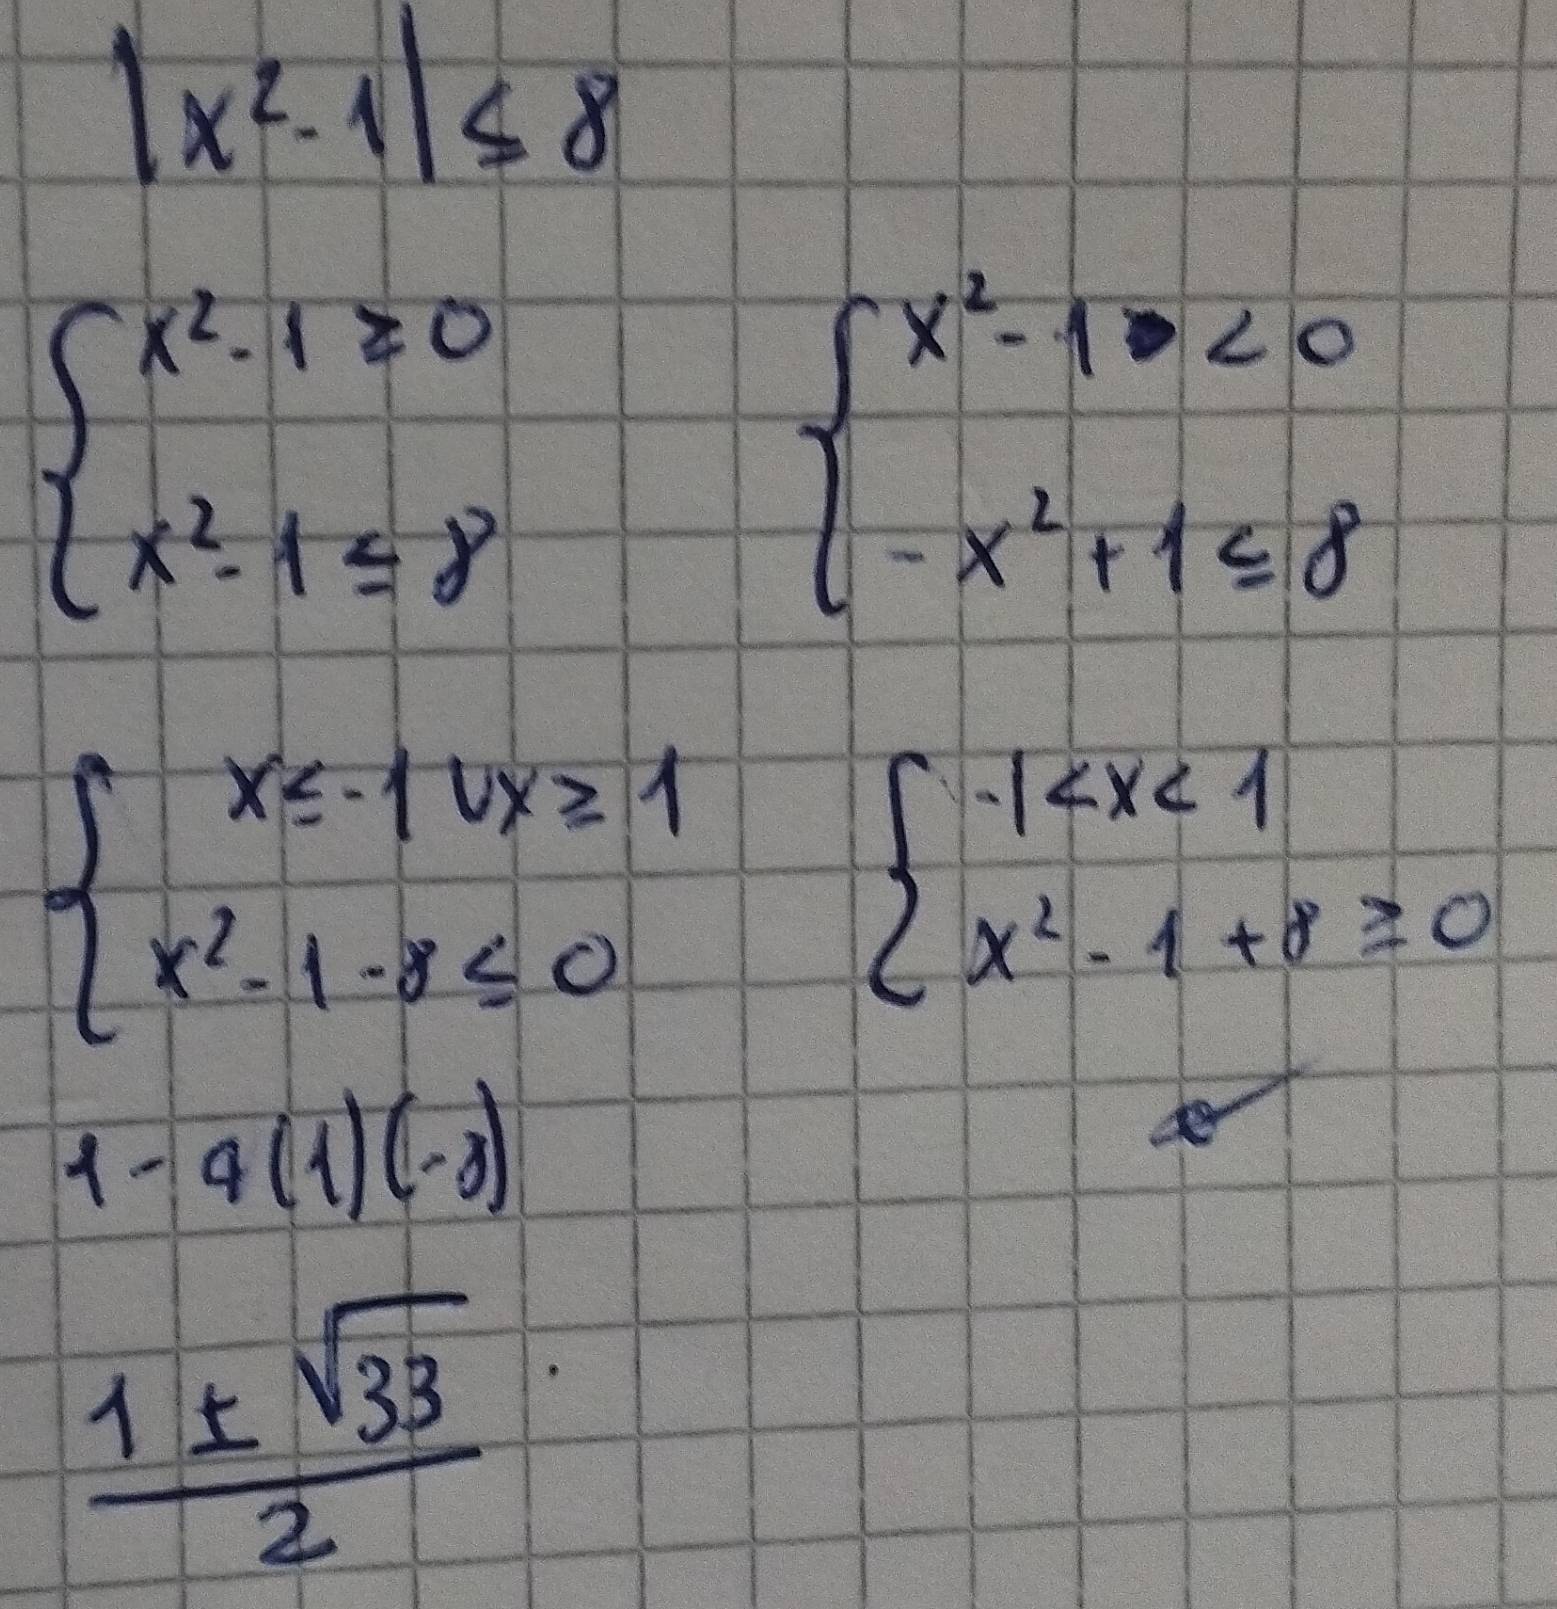 |x²-1| ≤ 8
x²-1 ≥ 0
x²-1 ≤ 8
x²-1 < 0
-x²+1 ≤ 8
x ≤ -1 ∨ x ≥ 1
x²-1-8 ≤ 0
-1 < x < 1
x²-1+8 ≥ 0
1-4(1)(-8)
(1 ± √33)/2